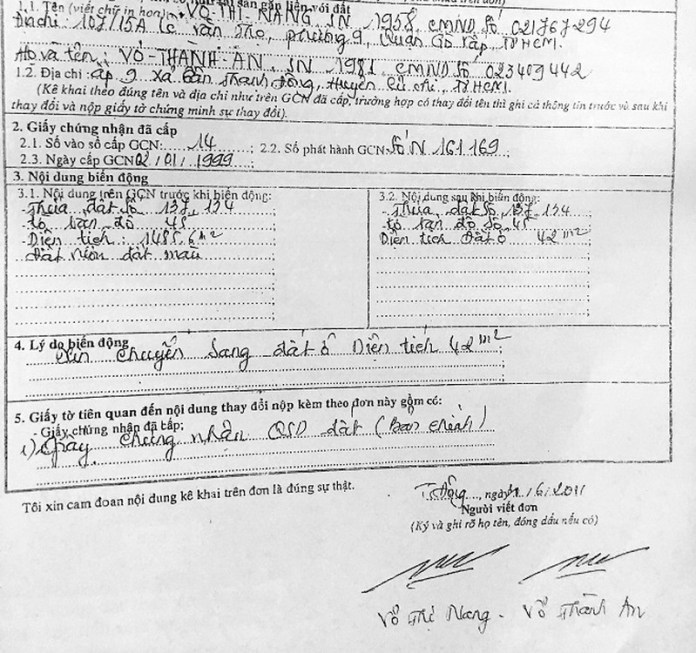 1.1. Tên (viết chữ in hoa): VÕ THỊ NANG SN 1958 CMND Số 021767294
Địa chỉ: 107/15A Lê Văn Thọ, phường 9, Quận Gò Vấp, TPHCM.
Họ và tên: VÕ THÀNH AN. SN 1981 CMND Số 023409442
1.2. Địa chỉ: ấp 9 xã Tân Thạnh Đông, Huyện Củ Chi, TPHCM.
(Kê khai theo đúng tên và địa chỉ như trên GCN đã cấp, trường hợp có thay đổi tên thì ghi cả thông tin trước và sau khi
thay đổi và nộp giấy tờ chứng minh sự thay đổi).
2. Giấy chứng nhận đã cấp
2.1. Số vào sổ cấp GCN: 14; 2.2. Số phát hành GCN: Số N 161169;
2.3. Ngày cấp GCN 02/01/1999;
3. Nội dung biến động
3.1. Nội dung trên GCN trước khi biến động:
- Thửa đất số 137, 134
tờ bản đồ 45
- Diện tích: 1485,6 m²
đất màu
3.2. Nội dung sau khi biến động:
- Thửa đất số 137, 134
- tờ bản đồ số 45
Diện tích đất ở 42 m²
4. Lý do biến động
Xin chuyển sang đất ở Diện tích 42 m²
5. Giấy tờ tiên quan đến nội dung thay đổi nộp kèm theo đơn này gồm có:
- Giấy chứng nhận đã cấp:
1) Giấy chứng nhận QSD đất (Bản chính)
Tôi xin cam đoan nội dung kê khai trên đơn là đúng sự thật.
T. Đông, ngày /6/2011
Người viết đơn
(Ký và ghi rõ họ tên, đóng dấu nếu có)
Võ Thị Nang - Võ Thành An